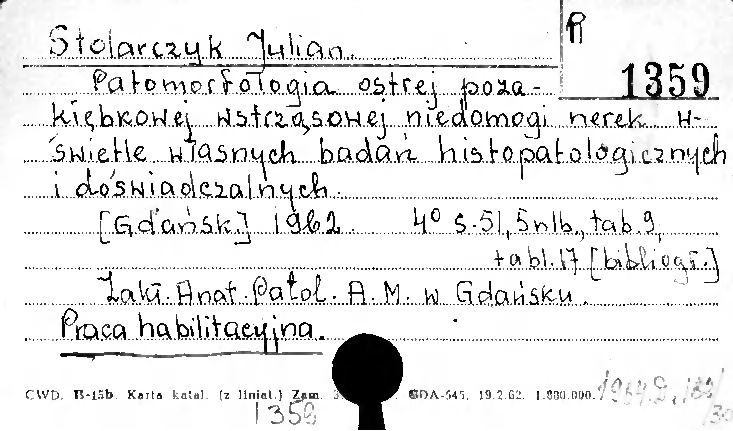 Stolarczyk Julian.
R 1359
Patomorfologia ostrej poza-
kłębkowej wstrząsowej niedomogi nerek w
świetle własnych badań histopatologicznych
i doświadczalnych.
[Gdańsk] 1962. 4° s. 51, 5 nlb., tab. 9,
tabl. 17 [bibliogr.]
Zakł. Anat. Patol. A. M. w Gdańsku.
Praca habilitacyjna.
CWD. B-15b. Karta katal. (z liniat.) Zam. GDA-545. 19.2.62. 1.800.000.
1359